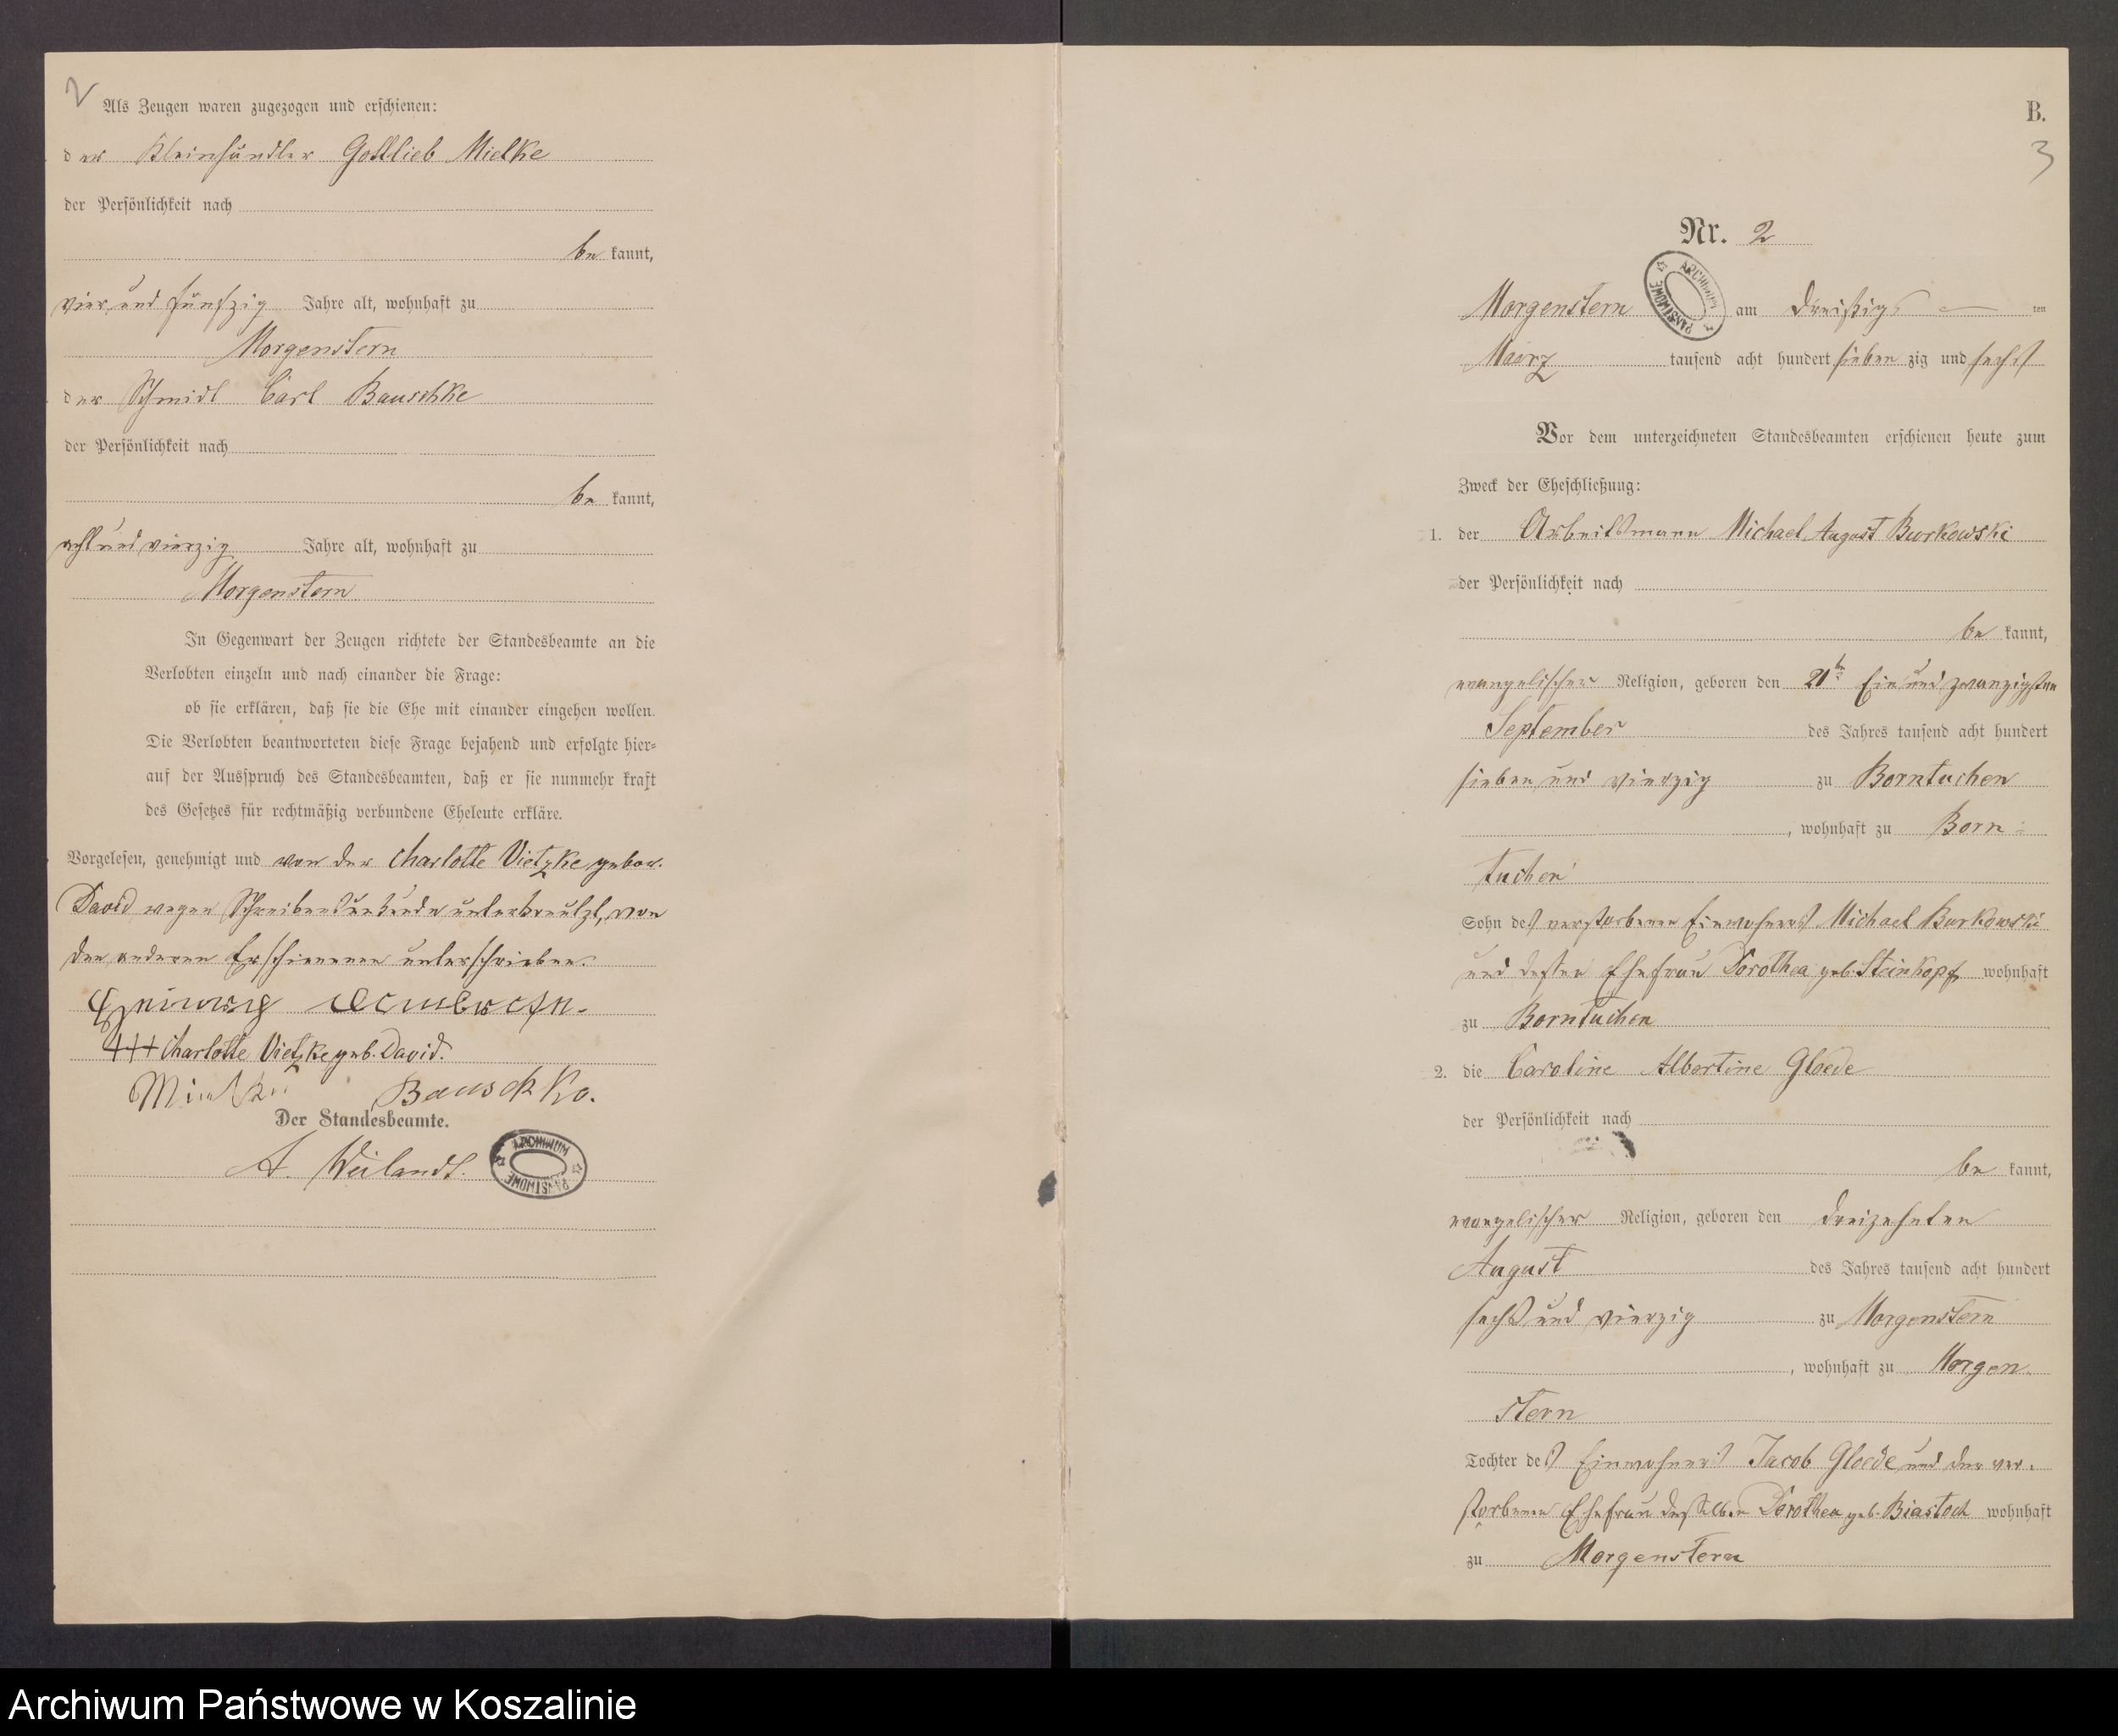 2
Als Zeugen waren zugezogen und erschienen:
der Kleinhändler Gottlieb Mielke
der Persönlichkeit nach
be kannt,
vier und fünfzig Jahre alt, wohnhaft zu
Morgenstern
der Schmidt Carl Bauschke
der Persönlichkeit nach
be kannt,
acht und vierzig Jahre alt, wohnhaft zu
Morgenstern
In Gegenwart der Zeugen richtete der Standesbeamte an die
Verlobten einzeln und nach einander die Frage:
ob sie erklären, daß sie die Ehe mit einander eingehen wollen.
Die Verlobten beantworteten diese Frage bejahend und erfolgte hier=
auf der Ausspruch des Standesbeamten, daß er sie nunmehr kraft
des Gesetzes für rechtmäßig verbundene Eheleute erkläre.
Vorgelesen, genehmigt und von der Charlotte Vietzke gebor.
David wegen Schreibensunkunde unterkreutzt, von
den anderen Erschienenen unterschrieben.
+++ Charlotte Vietzke geb. David.
Mielke Bauschke.
Der Standesbeamte.
A. Weilandt.
ARCHIWUM PAŃSTWOWE
B.
3
Nr. 2
ARCHIWUM PAŃSTWOWE
Morgenstern am dreißigs ten
Maerz tausend acht hundert sieben zig und sechs
Vor dem unterzeichneten Standesbeamten erschienen heute zum
Zweck der Eheschließung:
1. der Arbeitsmann Michael August Burkowski
der Persönlichkeit nach
be kannt,
evangelischer Religion, geboren den 21ten Ein und zwanzigsten
September des Jahres tausend acht hundert
sieben und vierzig zu Borntuchen
, wohnhaft zu Born=
tuchen
Sohn des verstorbenen Einwohners Michael Burkowski
und dessen Ehefrau Dorothea geb. Steinkopf wohnhaft
zu Borntuchen
2. die Caroline Albertine Gloede
der Persönlichkeit nach
be kannt,
evangelischer Religion, geboren den dreizehnten
August des Jahres tausend acht hundert
sechs und vierzig zu Morgenstern
, wohnhaft zu Morgen=
stern
Tochter des Einwohners Jacob Gloede und der ver=
storbenen Ehefrau desselben Dorothea geb. Biastoch wohnhaft
zu Morgenstern
Archiwum Państwowe w Koszalinie